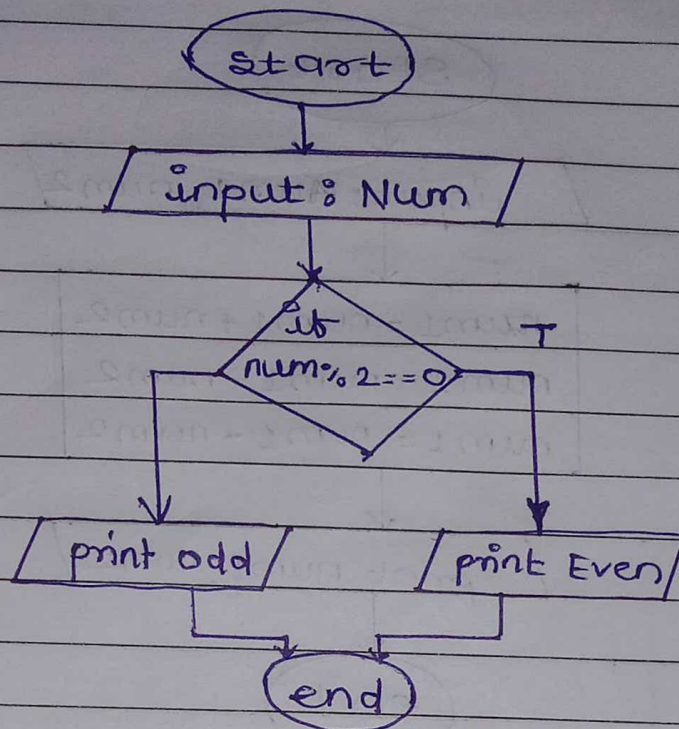 start
input : Num
if
T
num% 2==0
print odd
print Even
end